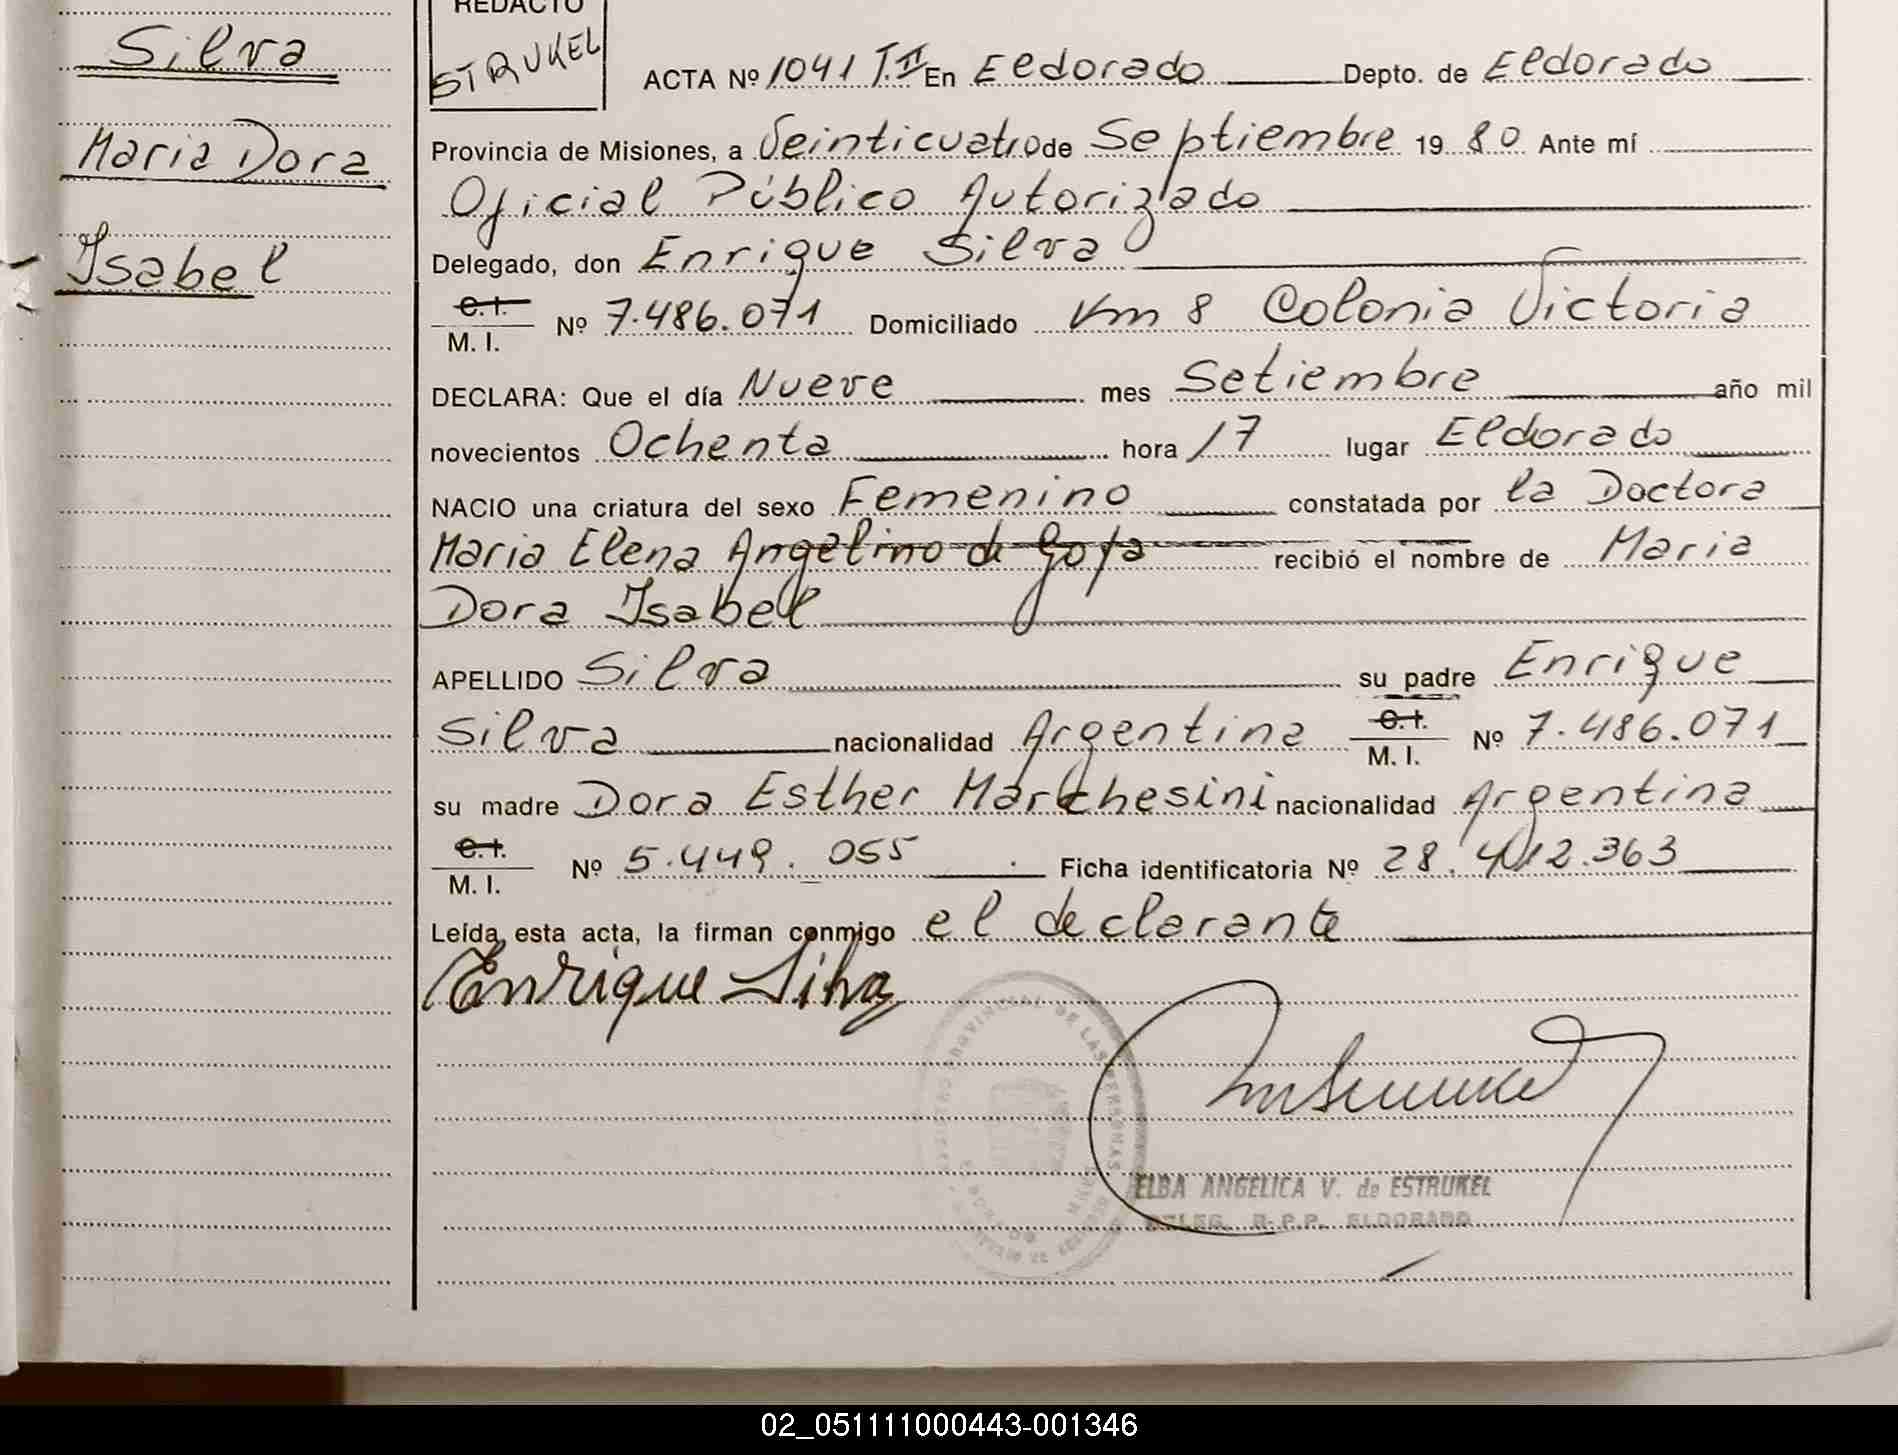 Silva
Maria Dora
Isabel
REDACTO
STRUKEL
ACTA Nº 1041 T.II En Eldorado Depto. de Eldorado
Provincia de Misiones, a Veinticuatro de Septiembre 19 80 Ante mí
Oficial Público Autorizado
Delegado, don Enrique Silva
C.I.
M. I. Nº 7.486.071 Domiciliado Km 8 Colonia Victoria
DECLARA: Que el día Nueve mes Setiembre año mil
novecientos Ochenta hora 17 lugar Eldorado
NACIO una criatura del sexo Femenino constatada por la Doctora
Maria Elena Angelino de recibió el nombre de Maria
Dora Isabel
APELLIDO Silva su padre Enrique
Silva nacionalidad Argentina C.I. M. I. Nº 7.486.071
su madre Dora Esther Marchesini nacionalidad Argentina
C.I.
M. I. Nº 5.449.055 Ficha identificatoria Nº 28.412.363
Leída esta acta, la firman conmigo el declarante
Enrique Silva
PROVINCIAL DE LAS PERSONAS
ELBA ANGELICA V. de ESTRUKEL
DELEG. R.P.P. ELDORADO
02_051111000443-001346